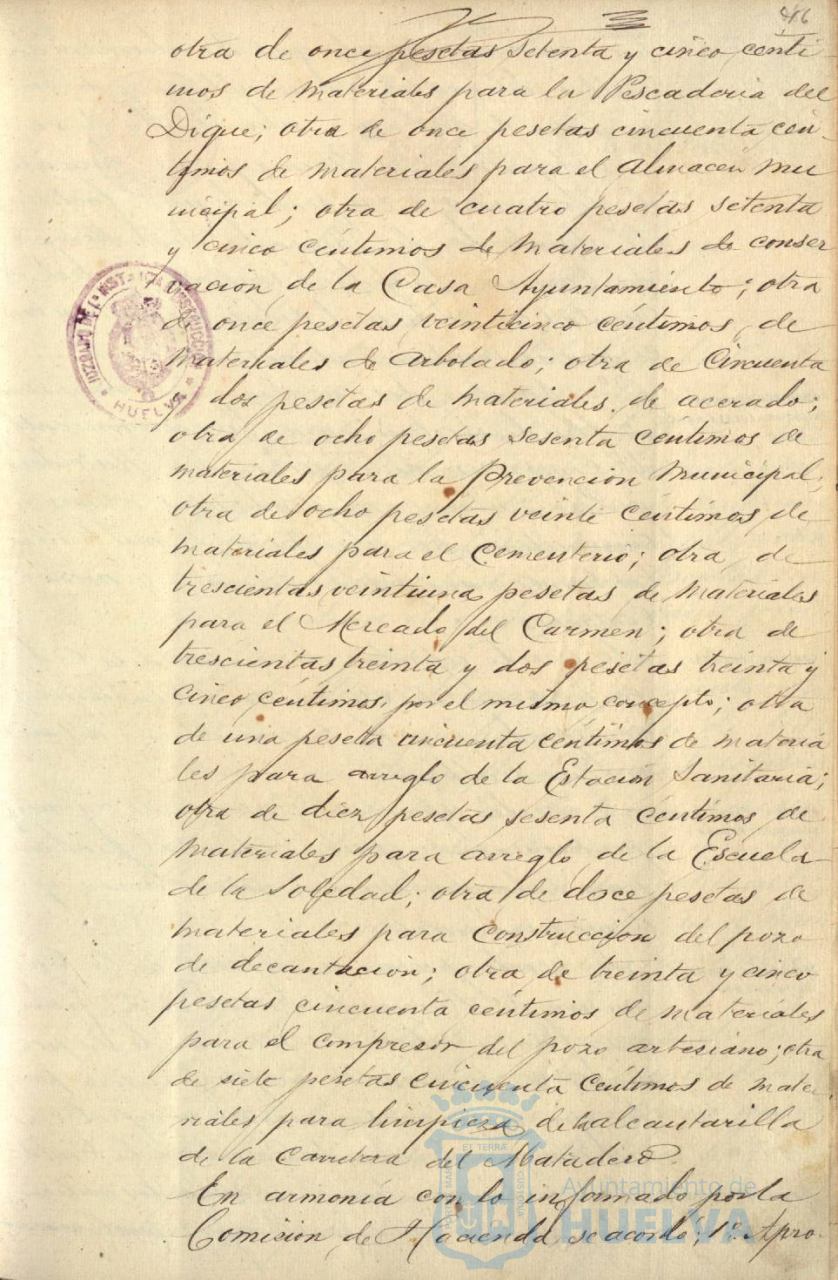 416
otra de once pesetas setenta y cinco cénti
mos de materiales para la Pescaderia del
Dique; otra de once pesetas cincuenta cén-
timos de materiales para el Almacén mu
nicipal; otra de cuatro pesetas setenta
y cinco céntimos de materiales de conser
vación de la Casa Ayuntamiento; otra
de once pesetas veinticinco céntimos de
materiales de Arbolado; otra de Cincuenta
y dos pesetas de materiales de acerado;
otra de ocho pesetas sesenta céntimos de
materiales para la Prevencion Municipal;
otra de ocho pesetas veinte céntimos de
materiales para el Cementerio; otra de
trescientas veintiuna pesetas de materiales
para el Mercado del Carmen; otra de
trescientas treinta y dos pesetas treinta y
cinco céntimos por el mismo concepto; otra
de una peseta cincuenta céntimos de materia
les para arreglo de la Estación Sanitaria;
otra de diez pesetas sesenta céntimos de
materiales para arreglo de la Escuela
de la Soledad; otra de doce pesetas de
materiales para construccion del pozo
de decantación; otra de treinta y cinco
pesetas cincuenta céntimos de materiales
para el compresor del pozo artesiano; otra
de siete pesetas cincuenta céntimos de mate
riales para limpieza de la alcantarilla
de la Carretera del Matadero.
En armonía con lo informado por la
Comision de Hacienda se acordo; 1º Apro
JUZGADO DE 1ª INSTANCIA E INSTRUCCION
HUELVA
Ayuntamiento de
HUELVA